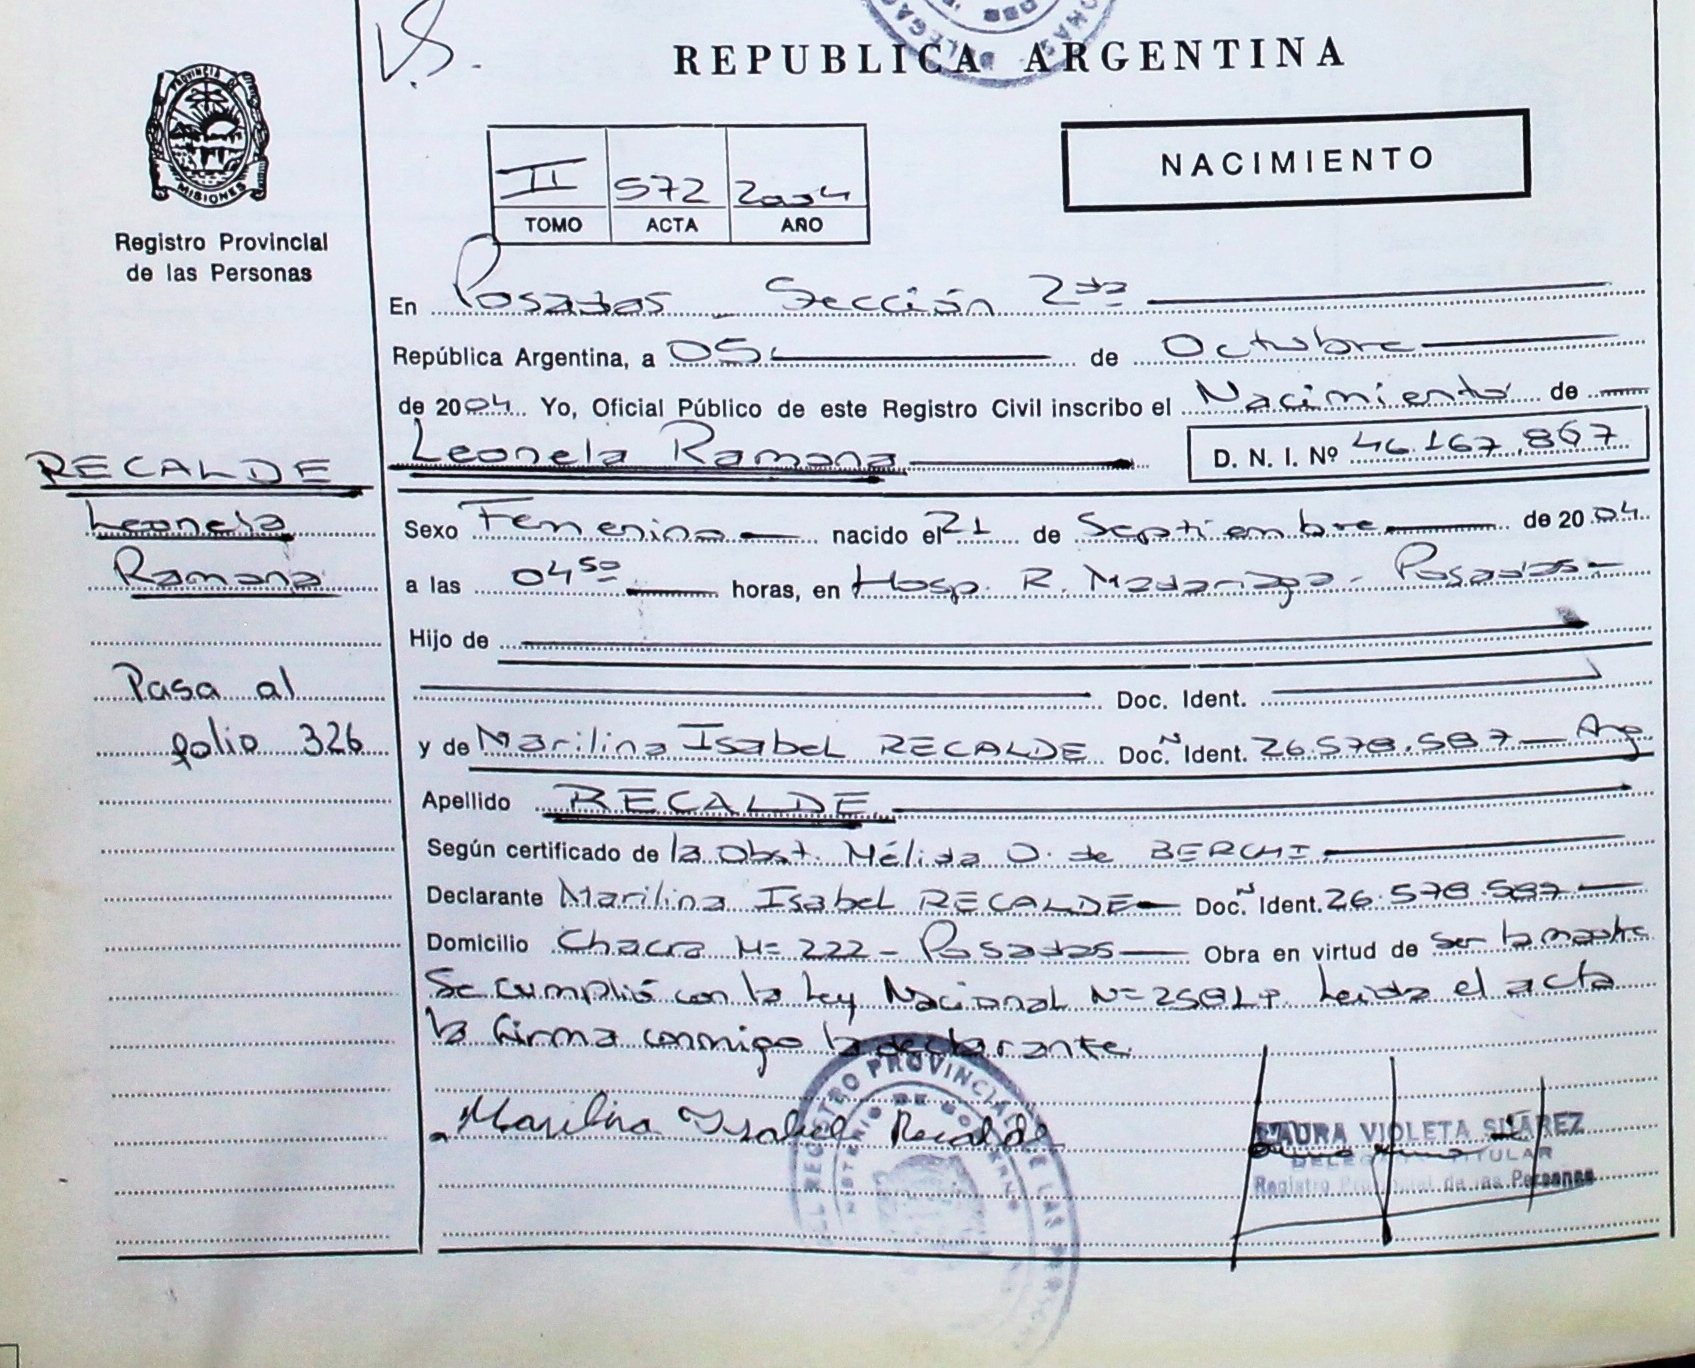 V.S.
REPUBLICA ARGENTINA
PROVINCIA DE MISIONES
Registro Provincial
de las Personas
NACIMIENTO
II 572 2004
TOMO ACTA AÑO
En Posadas - Sección 2da
República Argentina, a 05 de Octubre
de 2004. Yo, Oficial Público de este Registro Civil inscribo el Nacimiento de
Leonela Ramona D. N. I. Nº 46.167.867
RECALDE
Leonela
Ramona
Sexo Femenino nacido el 21 de Septiembre de 2004.
a las 04 50 horas, en Hosp. R. Madariaga - Posadas -
Hijo de
Doc. Ident.
Pasa al
folio 326
y de Marilina Isabel RECALDE Doc. N Ident. 26.578.587 - Arg
Apellido RECALDE
Según certificado de la Obst. Mélida O. de BERCHI
Declarante Marilina Isabel RECALDE - Doc. N Ident. 26.578.587 -
Domicilio Chacra N= 222 - Posadas - Obra en virtud de ser la madre
Se cumplió con la Ley Nacional N= Leída el acta
la firma conmigo la declarante.
Marilina Isabel Recalde
REGISTRO PROVINCIAL DE LAS
MINISTERIO DE GOBIERNO
LAURA VIOLETA SUAREZ
DELEGADA TITULAR
Registro Provincial de las Personas